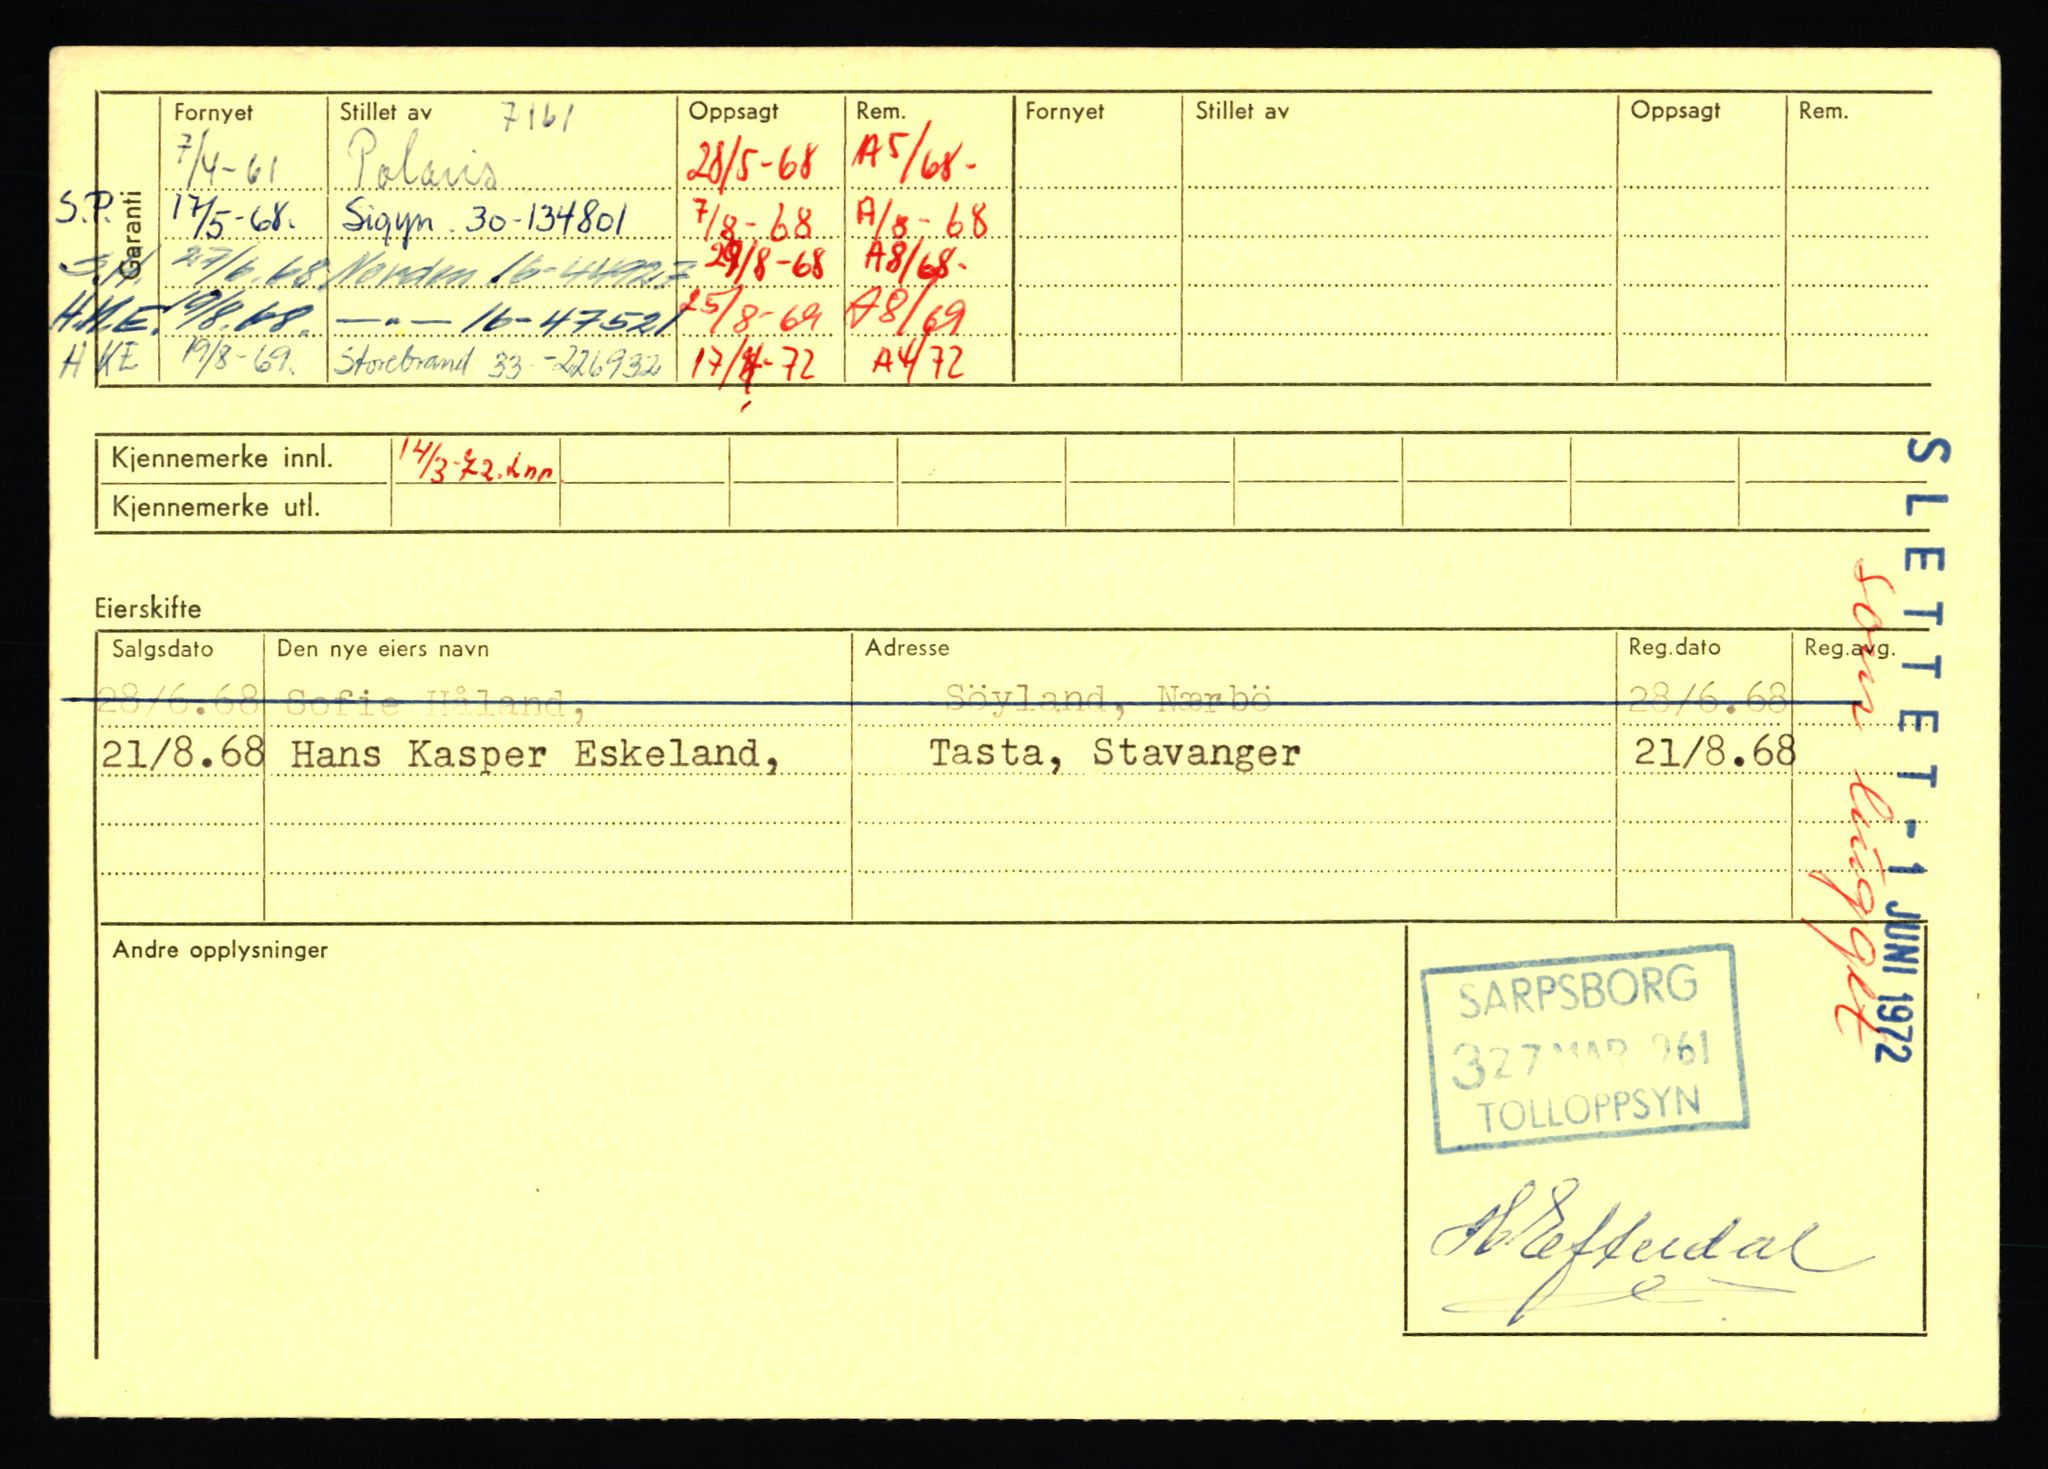 Fornyet Stillet av 7161 Oppsagt Rem. Fornyet Stillet av Oppsagt Rem.
Garanti
7/4-61 Polaris 28/5-68 A5/68-
S.P. 17/5-68. Sigyn 30-134801 7/8-68 A/8-68
27/6.68 Norden 16-44927 29/8-68 A8/68-
H.K.E. 19/8.68. —"— 16-47521 25/8-69 A8/69
H KE 19/8-69. Storebrand 33-226932 17/4-72 A4/72
Kjennemerke innl. 14/3-72.
Kjennemerke utl.
Eierskifte
Salgsdato Den nye eiers navn Adresse Reg.dato Reg.avg.
28/6.68 Sofie Håland, Söyland, Nærbö 28/6.68
21/8.68 Hans Kasper Eskeland, Tasta, Stavanger 21/8.68
Andre opplysninger
SLETTET - 1 JUNI 1972
som
SARPSBORG
327 MAR 961
TOLLOPPSYN